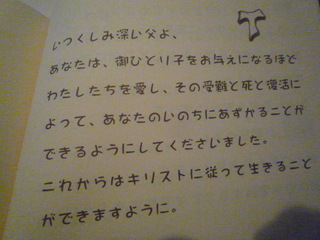 いつくしみ深い父よ、
あなたは、御ひとり子をお与えになるほど
わたしたちを愛し、その受難と死と復活に
よって、あなたのいのちにあずかることが
できるようにしてくださいました。
これからはキリストに従って生きること
ができますように。